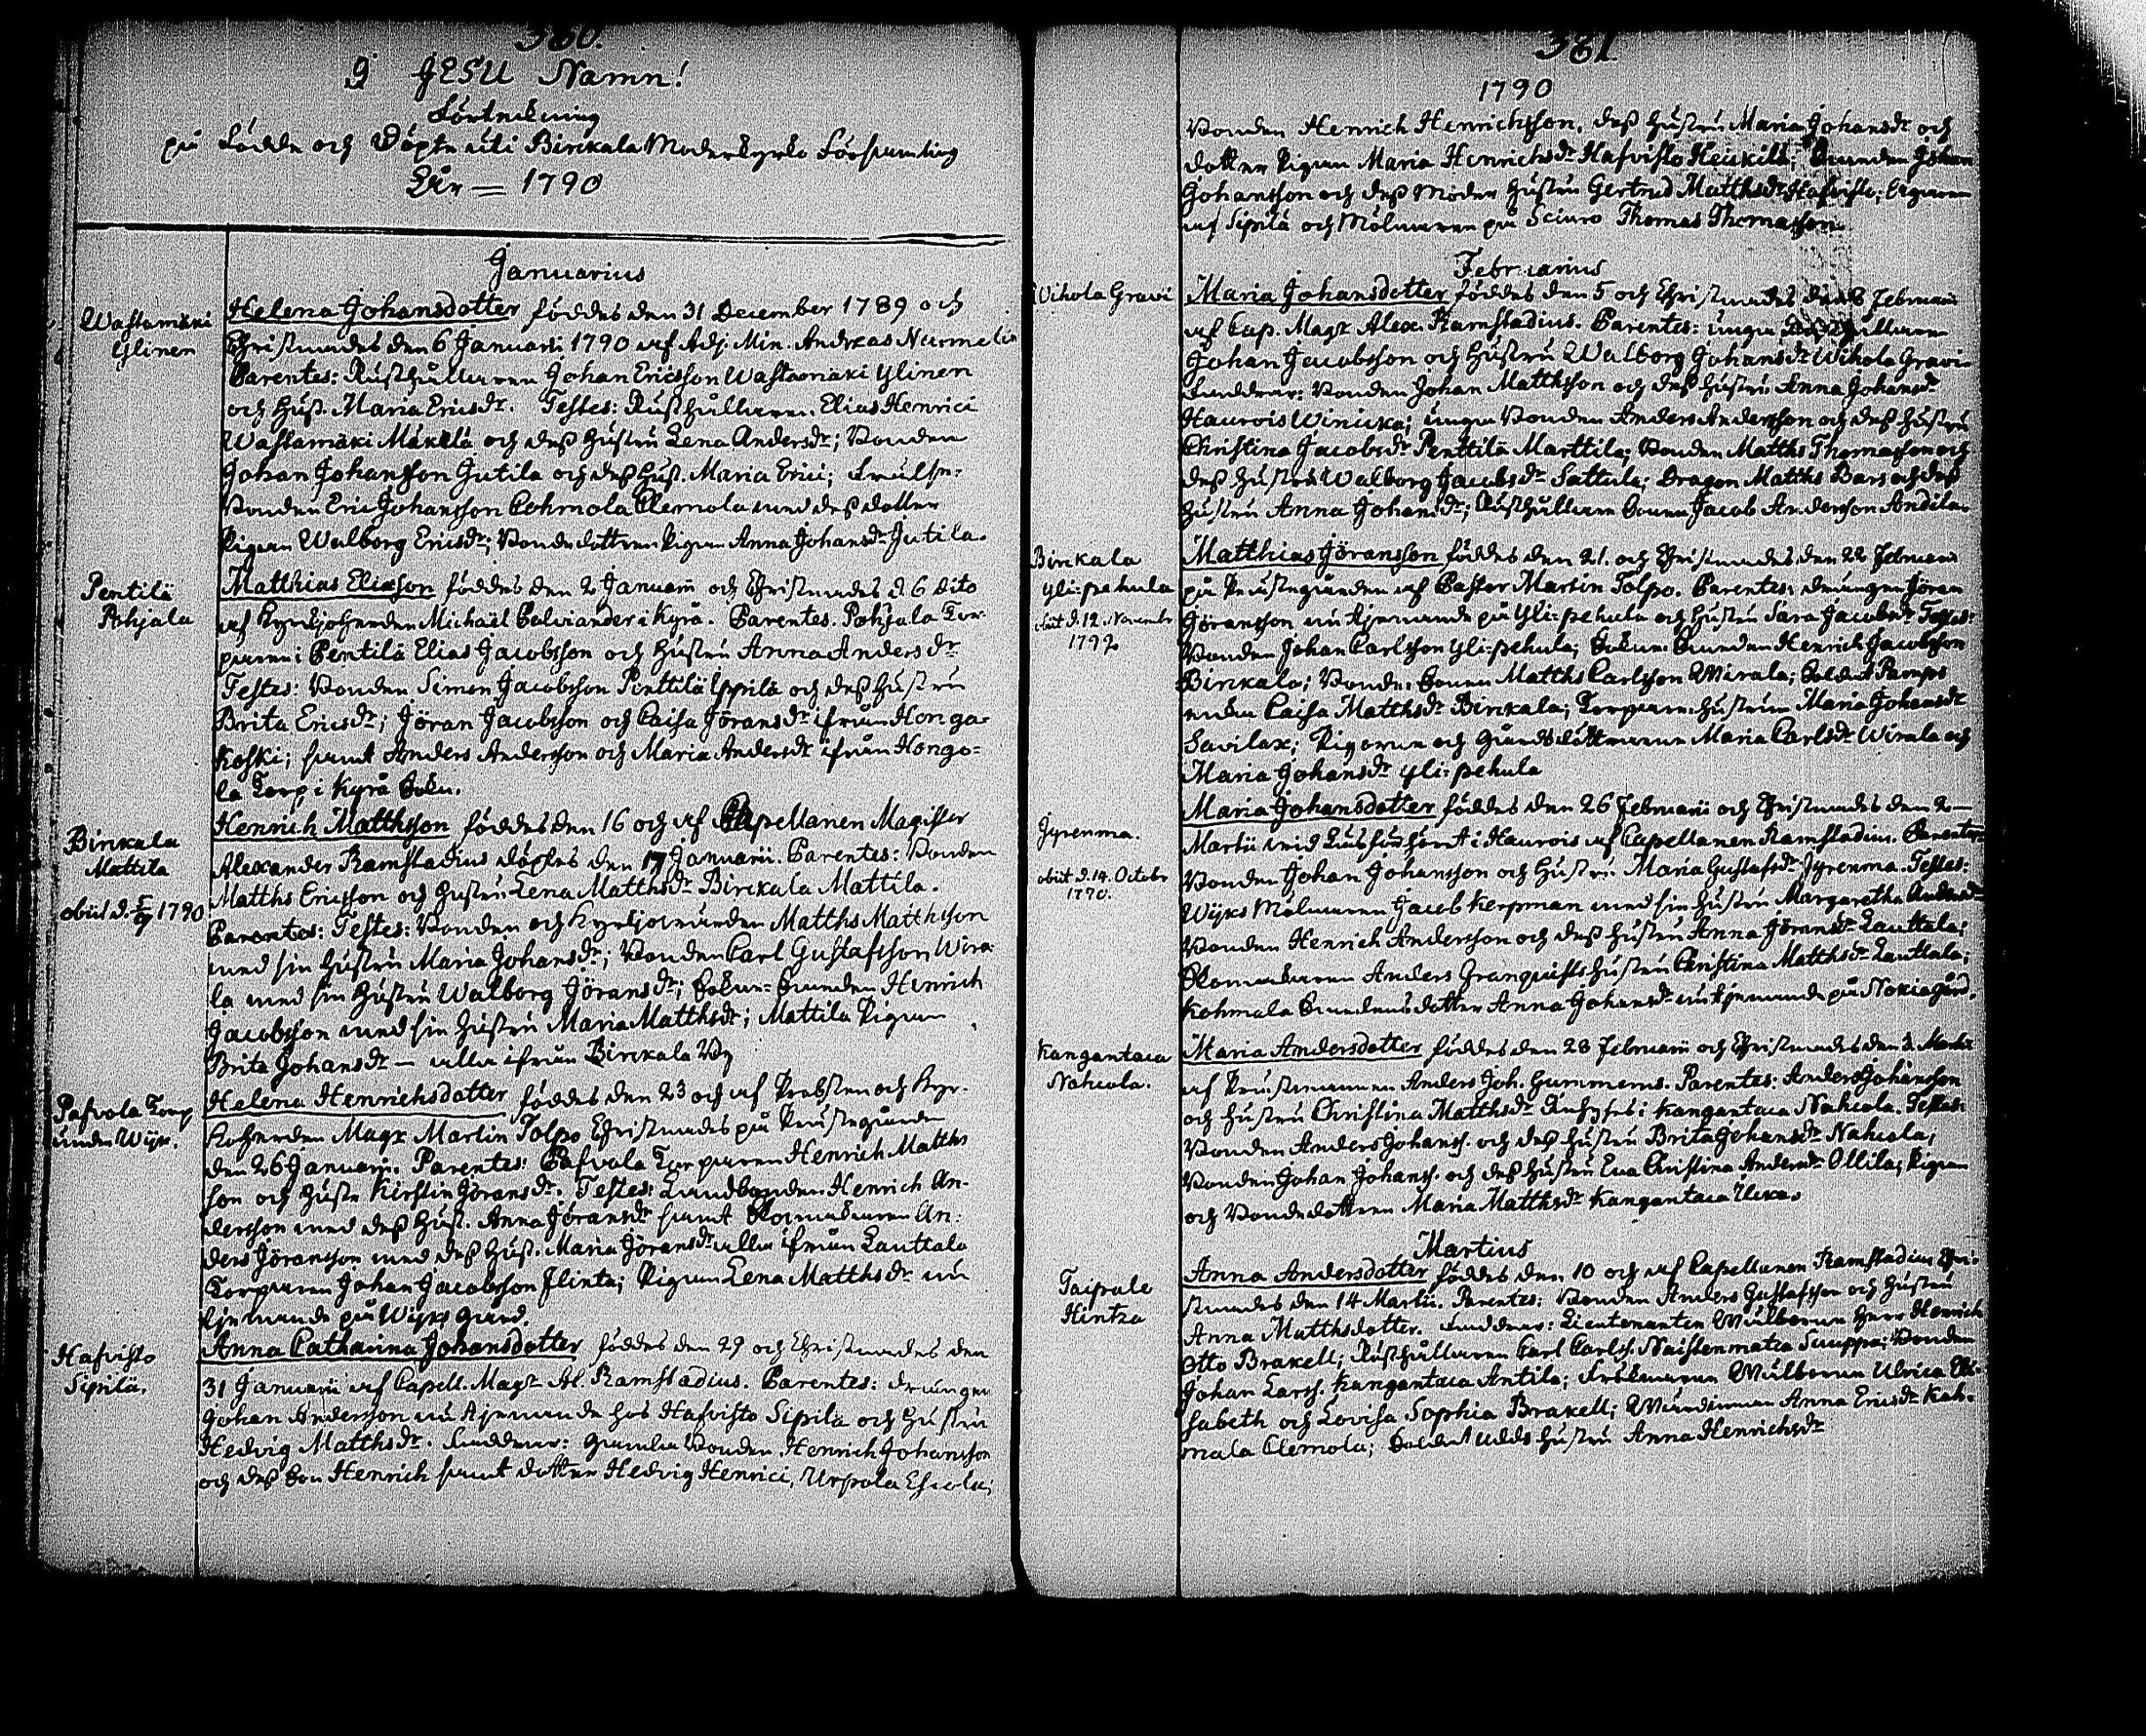 380.
I JESU Namn!
Förteckning
på Födde och Döpte uti Birckala Moderkyrko Församling
År — 1790
Januarius
Wastamäki
Ylinen
Helena Johansdotter föddes den 31 December 1789 och
Christnades den 6 Januarii 1790 af Adj. Min. Andreas Nurmelin
Parentes: Rusthållaren Johan Ericsson Wastamäki Ylinen
och Hust. Maria Ericsdr. Testes: Rusthållaren Elias Henrici
Wastamäki Mäkelä och dess Hustru Lena Andersdr; Bonden
Johan Johansson Jutila och dess Hust. Maria Erici; Frälse-
Bonden Eric Johansson Cohmola Clemola med dess dotter
Pigan Walborg Ericsdr; Bondedottren Pigan Anna Johansdr Jutila.
Pentilä
Pohjala
Matthias Eliasson föddes den 2 Januarii och Christnades d. 6 dito
af Kyrckjoherden Michaël Polviander i Kyrö. Parentes. Pohjala Tor-
paren i Pentilä Elias Jacobsson och Hustru Anna Andersdr
Testes: Bonden Simon Jacobsson Penttilä Yppilä och dess Hustru
Brita Ericsdr; Jöran Jacobsson och Caisa Jöransdr ifrån Honga-
koski; samt Anders Andersson och Maria Andersdr ifrån Hongo-
la Torp i Kyrö Sokn.
Birckala
Mattila
obiit d. 5/9 1790
Henrich Matthsson föddes den 16 och af Capellanen Magister
Alexander Ramstadius döptes den 17 Januarii. Parentes: Bonden
Matths Ericsson och Hustru Lena Matthsdr Birckala Mattila.
Parentes: Testes: Bonden och Kyrkjovärden Matths Matthsson
med sin Hustru Maria Johansdr; Bonden Carl Gustafsson Wira-
la med sin Hustru Walborg Jöransdr; Sokne-Smeden Henrich
Jacobsson med sin Hustru Maria Matthsdr; Mattila Pigan
Brita Johansdr — alla ifrån Birckala By
Pafvola Torp
under Wijk.
Helena Henrichsdotter föddes den 23 och af Probsten och Kyr-
koherden Magr Martin Tolpo Christnades på Prästegården
den 26 Januarii. Parentes: Pafvola Torparen Henrich Matths
son och Hustr Kirstin Jöransdr. Testes: Landbonden Henrich An-
dersson med dess Hust. Anna Jöransdr samt Klockaren An-
ders Jöransson med dess Hust. Maria Jöransdr alla ifrån Lauttala
Torparen Johan Jacobsson Flinta; Pigan Lena Matthsdr nu
tjenande på Wijks gård.
Hafvisto
Sipilä.
Anna Catharina Johansdotter föddes den 29 och Christnades den
31 Januarii af Capell. Magr Al. Ramstadius. Parentes: drängen
Johan Andersson nu tjenande hos Hafvisto Sipilä och Hustru
Hedvig Matthsdr. Faddrar: Gamla Bonden Henrich Johansson
och dess Son Henrich samt dotter Hedvig Henrici, Urpola Eskola;
381.
1790
Bonden Henrich Henrichsson, dess Hustru Maria Johansdr och
dotter Pigan Maria Henrichsdr Hafvisto Heikkilä; Johan
Johansson och dess Moder Hustru Gertrud Matthsdr Hafvisto;
af Sipilä och Mölnaren på Sciuro Thomas Thomasson.
Februarius
Wihola Gravi
Maria Johansdotter föddes den 5 och Christnades Februarii
af Cap. Magr Alex. Ramstadius. Parentes: unga Rusthållaren
Johan Jacobsson och Hustru Walborg Johansdr Wihola Gravi.
Faddrar: Bonden Johan Matthsson och dess Hustru Anna Johansdr
Haurois Winicka; unga Bonden Anders Andersson och dess Hustru
Christina Jacobsdr Penttilä Marttila; Bonden Matths Thomasson och
dess Hustru Walborg Jacobsdr Sattula; Dragon Matths Bars och dess
Hustru Anna Johansdr; Rusthållare Sonen Jacob Andersson Andila.
Birckala
Yli-pehula
obiit d. 12. Novembr
1792
Matthias Jöransson föddes den 21. och Christnades den 22 Februarii
på Prästegården af Pastor Martin Tolpo. Parentes: drängen Jöran
Jöransson nu tjenande på Yli-pehula och Hustru Sara Jacobsdr. Testes:
Bonden Johan Carlsson Yli-pehula; Sokne-Smeden Henrich Jacobsson
Birckala; Bonde-Sonen Matths Carlsson Wirala; Soldat
enka Caisa Matthsdr Birckala; Torpare-Hustrun Maria Johansdr
Savilax; Pigorna och Gårdsdöttrarna Maria Carlsdr Wirala och
Maria Johansdr Yli-pehula
Jyrenma.
obiit d. 14. Octobr
1790.
Maria Johansdotter föddes den 26 Februarii och Christnades den 2
Martii vid Läsförhöret i Haurois af Capellanen Ramstadius. Parentes:
Bonden Johan Johansson och Hustru Maria Gustafsdr Jyrenma. Testes:
Wijks Mölnaren Jacob Kerpman med sin Hustru Margaretha Andersdr
Bonden Henrich Andersson och dess Hustru Anna Jöransdr Lauttala;
Klockaren Anders Granquists Hustru Christina Matthsdr Lauttala;
Kohmala Smedens dotter Anna Johansdr nu tjenande på Nokia gård.
Kangantaca
Nahcola.
Maria Andersdotter föddes den 28 Februarii och Christnades den 3. Martii
af Prästmannen Anders Joh. Gummerus. Parentes: Anders Johansson
och Hustru Christina Matthsdr i Kangantaca Nahcola. Testes:
Bonden Anders Johanss. och dess Hustru Brita Johansdr Nahcola;
Bonden Johan Johanss. och dess Hustru Eva Christina Andersdr Ollila; Pigan
och Bondedottren Maria Matthsdr Kangantaca
Martius
Taipale
Hintza
Anna Andersdotter föddes den 10 och af Capellanen Ramstadius Chri-
stnades den 14 Martii. Parentes: Bonden Anders Gustafsson och Hustru
Anna Matthsdotter. Faddrar: Lieutenanten Wälborne Herr Henrich
Otto Brakell; Rusthållaren Carl Carlss. Naistenmatca Sauppa; Bonden
Johan Larss. Kangantaca Antila; Fröknarna Wälborna Ulrica Eli-
sabeth och Lovisa Sophia Brakell; Wärdinnan Anna Ericsdr Koh-
mala Clemola; Soldat Hustru Anna Henrichsdr